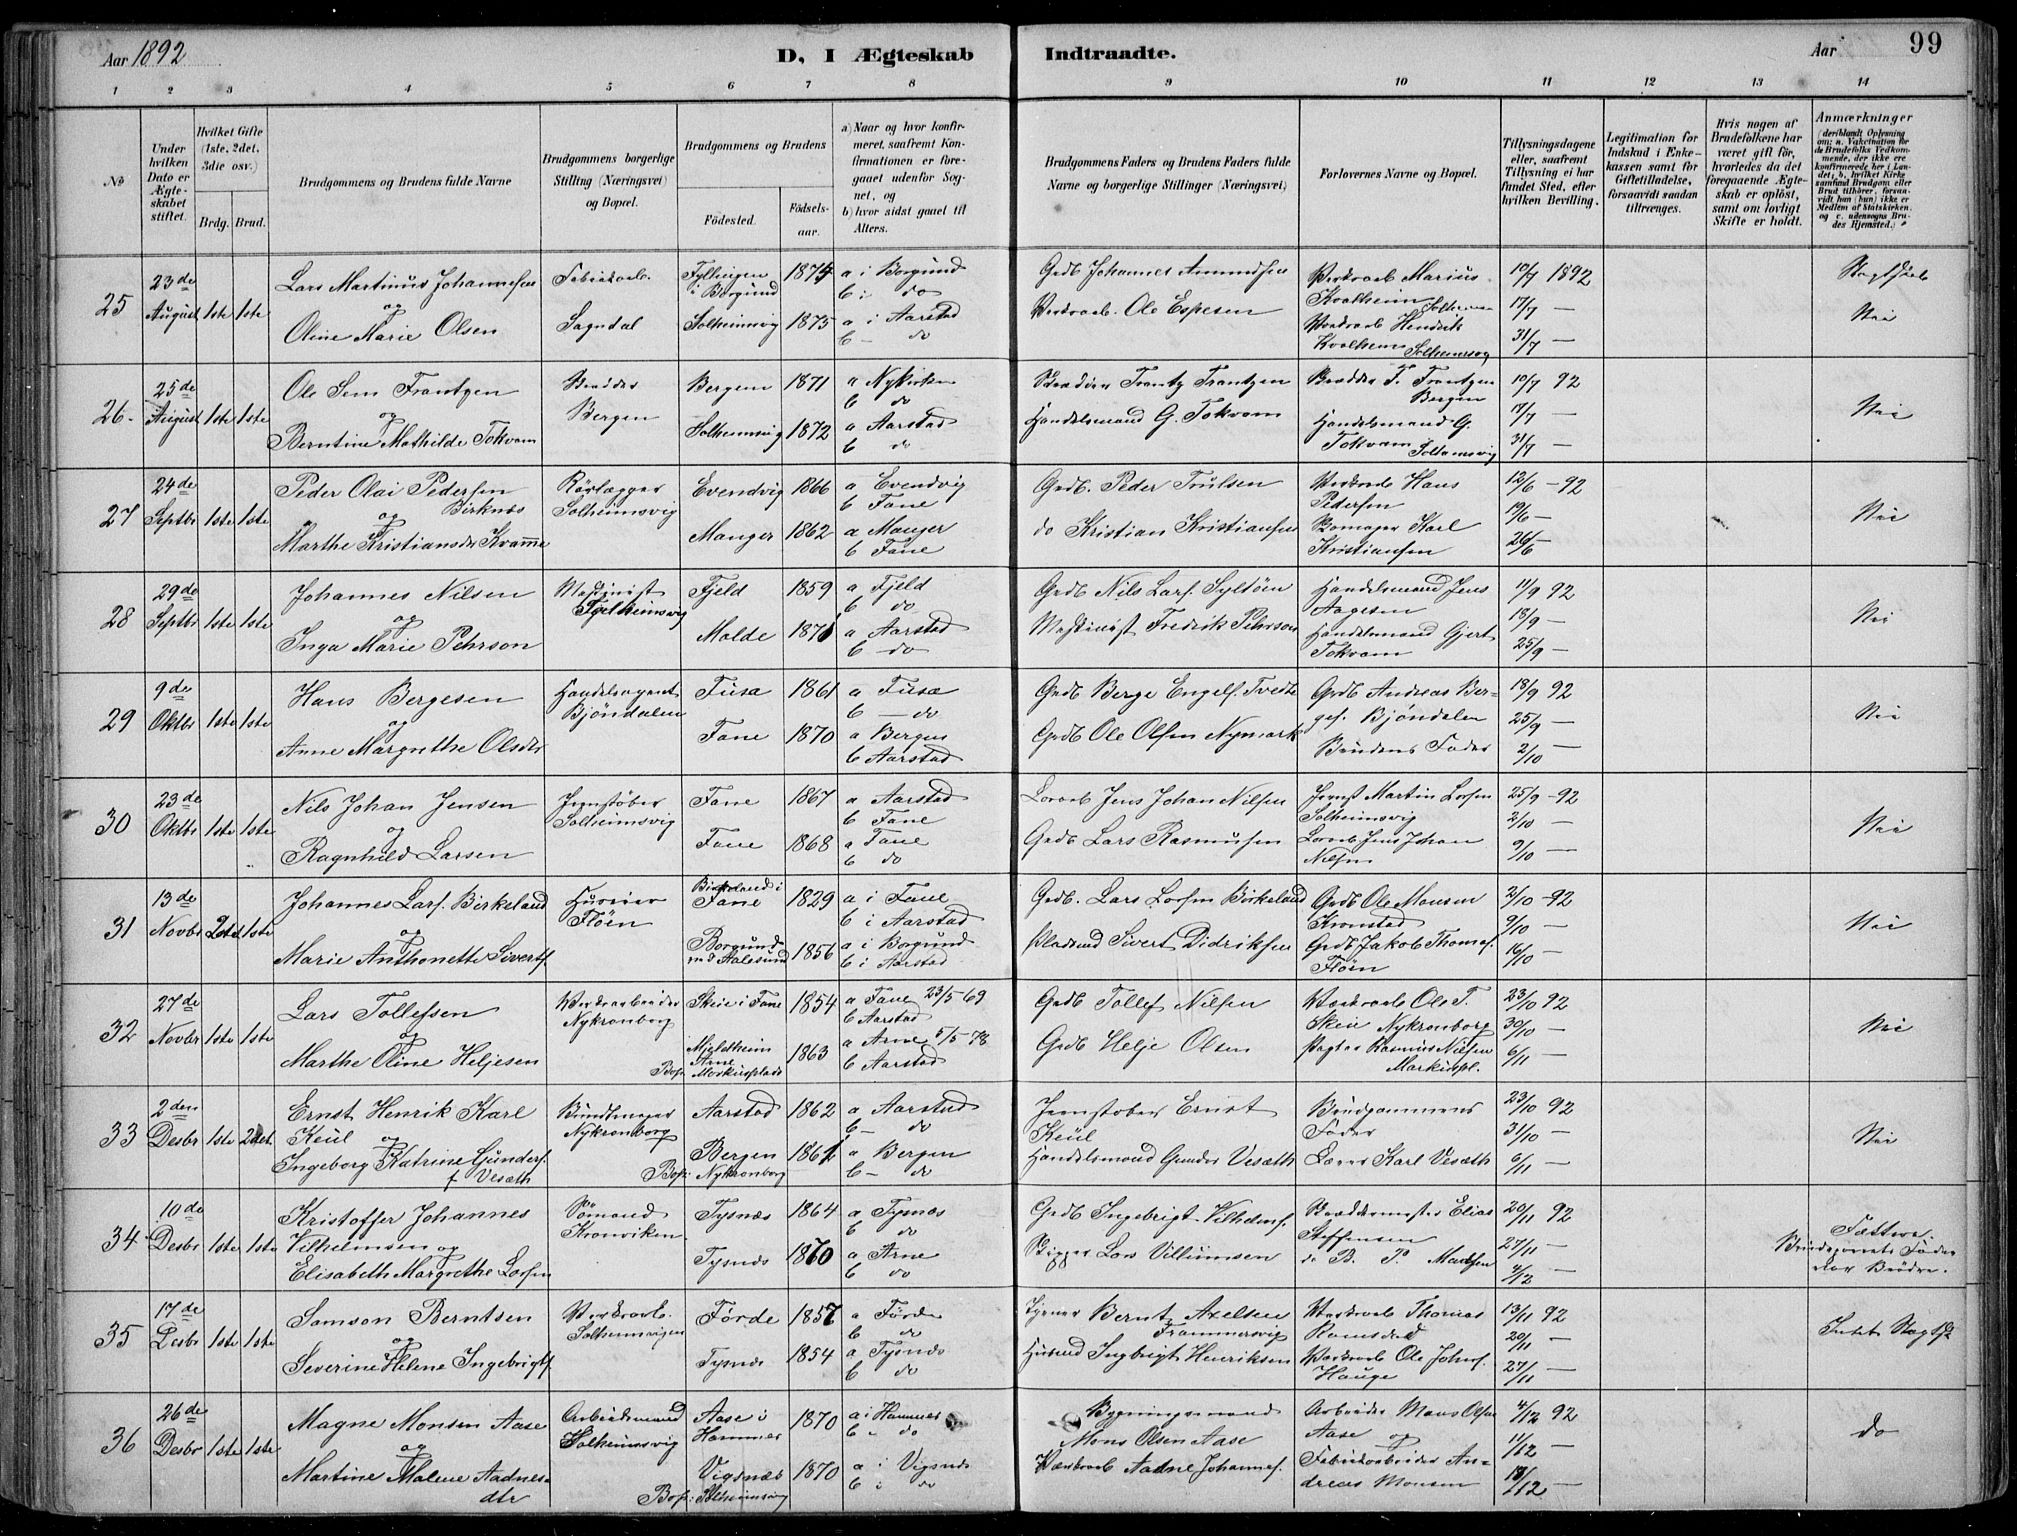 Aar 1892
D, I Ægteskab Indtraadte.
Aar
99
1 2 3 4 5 6 7 8 9 10 11 12 13 14
No
Under hvilken Dato er Ægteskabet stiftet.
Hvilket Gifte (1ste, 2det, 3die osv.)
Brdg. Brud.
Brudgommens og Brudens fulde Navne
Brudgommens borgerlige Stilling (Næringsvei) og Bopæl.
Brudgommens og Brudens
Födested. Födselsaar.
a) Naar og hvor konfirmeret, saafremt Konfirmationen er foregaaet udenfor Sognet, og
b) hvor sidst gaaet til Alters.
Brudgommens Faders og Brudens Faders fulde Navne og borgerlige Stillinger (Næringsvei)
Forlovernes Navne og Bopæl.
Tillysningsdagene eller, saafremt Tillysning ei har fundet Sted, efter hvilken Bevilling.
Legitimation for Indskud i Enkekassen samt for Giftetilladelse, forsaavidt saadan tiltrænges.
Hvis nogen af Brudefolkene har været gift för, hvorledes da det foregaaende Ægteskab er oplöst, samt om lovligt Skifte er holdt.
Anmærkninger (deriblandt Oplysning om: a. Vakcination for de Brudefolks Vedkommende, der ikke ere konfirmerede her i Landet; b. hvilket Kirkesamfund Brudgom eller Brud tilhörer, forsaavidt han (hun) ikke er Medlem af Statskirken, og c. udensogns Brudes Hjemsted.)
25 23de August 1ste 1ste
Lars Martinus Johannesen og Oline Marie Olsen
Fabrikarb. Sagdal
i Borgund 1874 a i Borgund b i do
Solheimsvig 1875 a i Aarstad b — do
Grdb Johannes Amundsen
Verksarb. Ole Espesen
Verksarb Marius Kvalheim Solheimsv
Verksarb Hendrik Kvalheim Solheimsvig
10/7 1892
17/7 —
31/7 —
Nei
26 25de August 1ste 1ste
Ole Sem Frantzen og Berntine Mathilde Tokvam
Skrædder Bergen
Bergen 1871 a Nykirken b do
Solheimsvig 1872 a Aarstad b do
Skrædder Frantz Frantzen
Handelsmand G. Tokvam
Skrædder F. Frantzen Bergen
Handelsmand G. Tokvam Solheimsvig
10/7 92
17/7 —
31/7 —
Nei
27 24de Septbr 1ste 1ste
Peder Olai Pedersen Birknes og Marthe Kristiansdr Kvamme
Rørlægger Solheimsvig
Evendvig 1866 a Evendvig b Fane
Manger 1862 a Manger b Fane
Grdb. Peder Trulsen
do Kristian Kristiansen
Verksarb Hans Pedersen
Skomager Karl Kristiansen
12/6 — 92
19/6 —
26/6 —
Nei
28 29de Septbr 1ste 1ste
Johannes Nilsen og Inga Marie Pehrson
Maskinist Solheimsvig
Fjeld 1859 a Fjeld b do
Molde 1871 a Aarstad b — do
Grdb Nils Lars. Syltöen
Maskinist Fredrik Pehrson
Handelsmand Jens Aagesen
Handelsmand Gjert Tokvam
11/9 92
18/9 —
25/9 —
Nei
29 9de Oktbr 1ste 1ste
Hans Bergesen og Anne Margrethe Olsdtr
Handelsagent Bjöndalen
Fusa 1861 a Fusa b — do
Fane 1870 a Bergen b Aarstad
Grdb Berge Engels. Tvedte
Grdb Ole Olsen Nymark
Grdb Andreas Berges. Bjöndalen
Brudens Fader
18/9 92
25/9 —
2/10 —
Nei
30 23de Oktbr 1ste 1ste
Nils Johan Jensen og Ragnhild Larsen
Jernstøber Solheimsvig
Fane 1867 a Aarstad b Fane
Fane 1868 a Fane b do
Jens Johan Nilsen
Grdb Lars Rasmussen
Jernst Martin Larsen Solheimsvig
Jens Johan Nilsen
25/9 — 92
2/10 —
9/10 —
Nei
31 13de Novbr 2det 1ste
Johannes Lars. Birkeland og Marie Anthonette Siverts.
Flöen
Birkeland i Fane 1829 a i Fane b i Aarstad
Borgund ved Aalesund 1856 a i Borgund b i Aarstad
Grdb. Lars Larsen Birkeland
Pladsmd Sivert Didriksen
Grdb Ole Monsen Kronstad
Grdb Jakob Thomas. Flöen
2/10 — 92
9/10 —
16/10 —
Nei
32 27de Novbr 1ste 1ste
Lars Tollefsen og Marthe Oline Heljesen
Verksarbeider Nykronborg
Skeie i Fane 1854 a Fane 23/5 69 b Aarstad
Mjeldheim Arne 1863 a Arne 5/5 78 b Aarstad
Bop. Markusplads
Grdb Tollef Nilsen
Grdb Helje Olsen
Verksarb Ole T. Skeie Nykronborg
Rasmus Nilsen Markuspl.
23/10 92
30/10 —
6/11 —
Nei
33 2den Desbr 1ste 2det
Ernst Henrik Karl Keül og Ingeborg Katrine Gunders. f Vesæth
Bundtmager Nykronborg
Aarstad 1862 a Aarstad b — do
Bergen 1861 a Bergen b — do
Bop: Nykronborg
Jernstøber Ernst Keül
Handelsmand Gunder Vesæth
Brudgommens Fader
Lærer Karl Vesæth
23/10 92
31/10 —
6/11 —
Nei
34 10de Desbr 1ste 1ste
Kristoffer Johannes Vilhelmsen og Elisabeth Margrethe Larsen
Sömand Kronviken
Tysnes 1864 a Tysnes b do
Tysnes 1870 a Arne b do
Grdb Ingebrigt Vilhelms.
Bygger Lars Villumsen
Skræddermester Elias Steffensen
do B. P. Madsen
20/11 92
27/11 —
4/12 —
Fættere.
Brødre.
35 17de Desbr 1ste 1ste
Samson Berntsen og Severine Helene Ingebrigts.
Verksarb. Solheimsvigen
Förde 1857 a Förde b do
Tysnes 1854 a Tysnes b do
Bernt Axelsen Frammersvig
Husmd Ingbrigt Henriksen
Verksarb Thomas Ramsdal
Verksarb Ole Johns. Hauge
13/11 92
20/11 —
27/11 —
Intet Slagtsk
36 26de Desbr 1ste 1ste
Magne Monsen Aase og Martine Malene Aadnesdtr
Arbeidsmand Solheimsvig
Aase i Hammer 1870 a i Hammer b — do
Vigsnes 1870 a i Vigsnes b i do
Bop: Solheimsvig
Bygningsmand Mons Olsen Aase
Verksarb Aadne Johannes.
Arbeider Mons Olsen Aase og
Fabrikarbeider Andreas Monsen
4/12 92
11/12 —
18/12 —
do